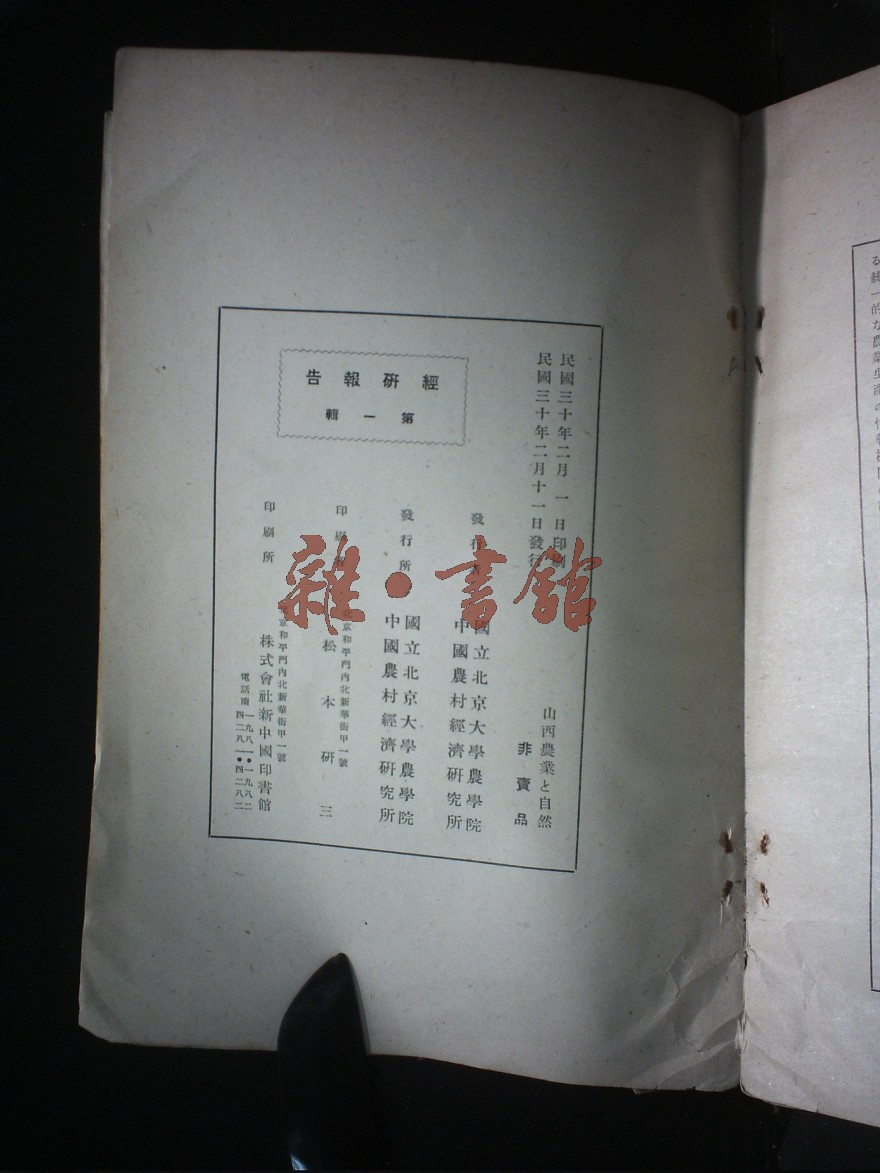 民國三十年二月 一 日印刷
民國三十年二月十一日發行
山西農業と自然
非賣品
經研報告
第一輯
發行者
國立北京大學農學院
中國農村經濟研究所
發行所
國立北京大學農學院
中國農村經濟研究所
印刷者
北京和平門內北新華街甲一號
松本研三
印刷所
北京和平門內北新華街甲一號
株式會社新中國印書館
電話南 一九八一・一九八二
四二八一・四二八二
雜・書館
る統一的な農業